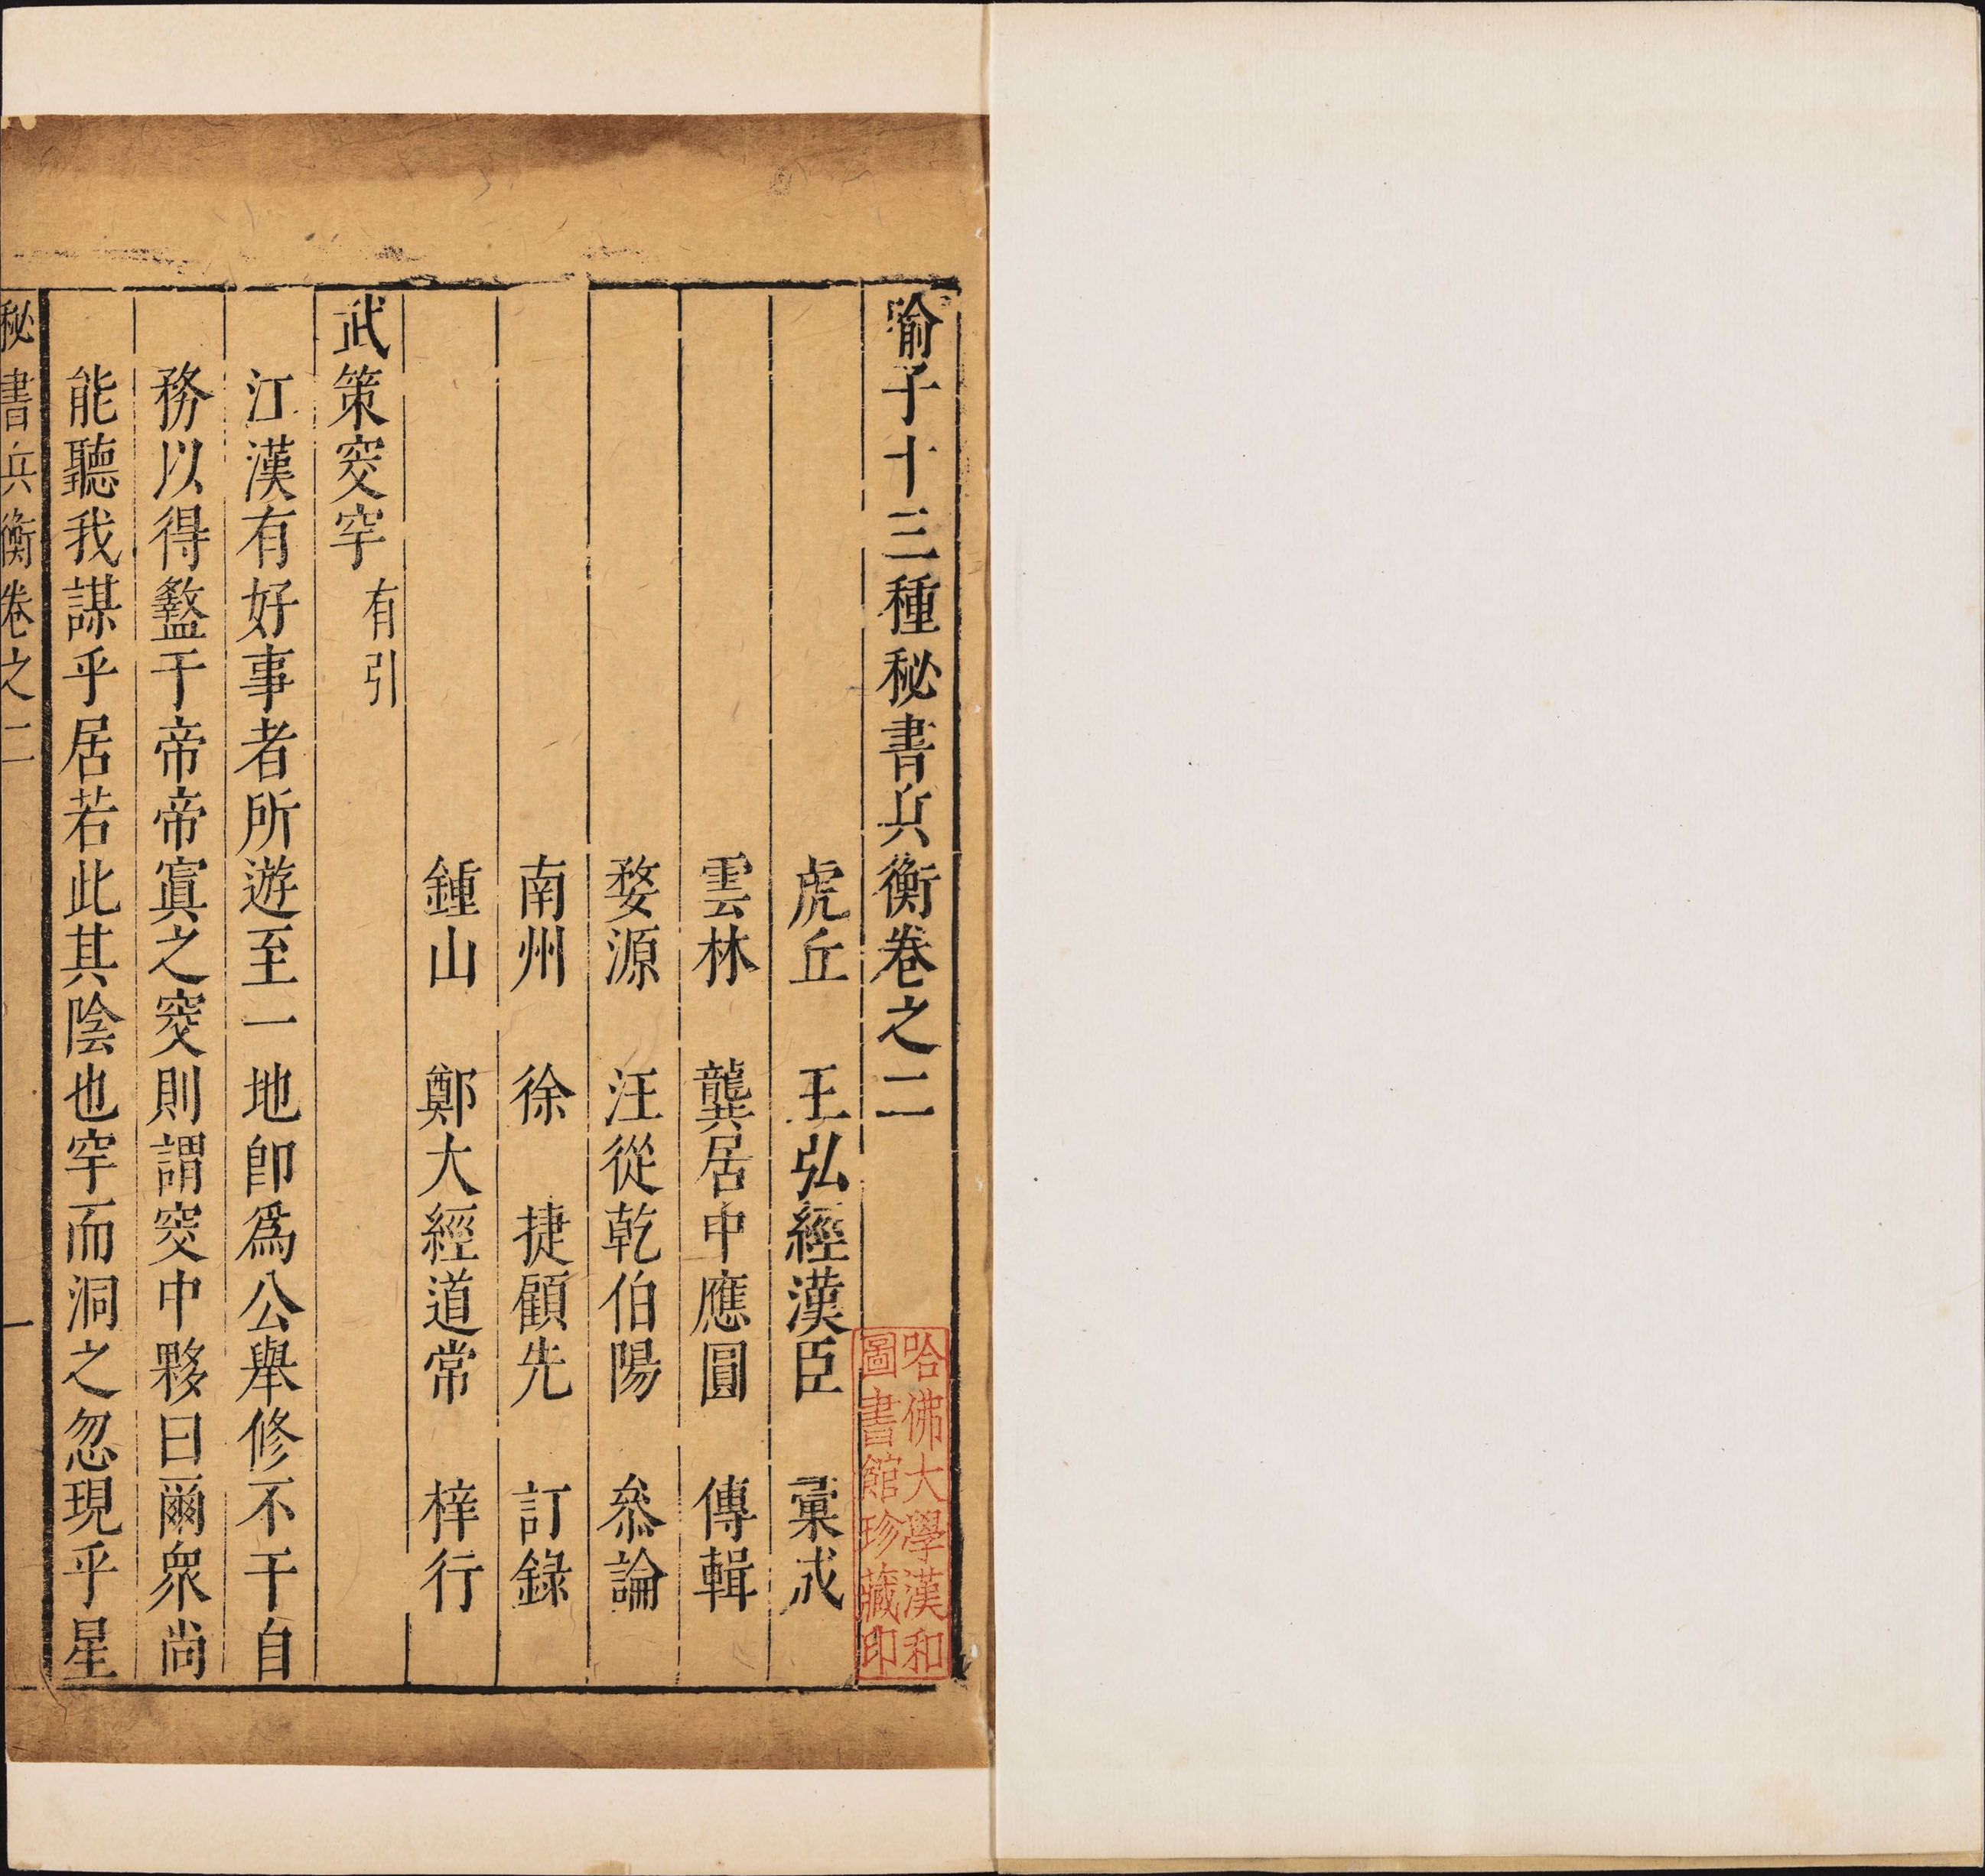 喻子十三種秘書兵衡卷之二
虎丘 王弘經漢臣 彙成
雲林 龔居中應圓 傳輯
婺源 汪從乾伯陽 叅論
南州 徐 捷顧先 訂錄
鍾山 鄭大經道常 梓行
武策突穽 有引
江漢有好事者所遊至一地卽爲公舉修不干自
務以得盭于帝帝寘之窔則謂窔中夥曰爾衆尚
能聽我謀乎居若此其陰也穽而洞之忽現乎星
秘書兵衡卷之二 一
哈佛大學漢和
圖書館珍藏印